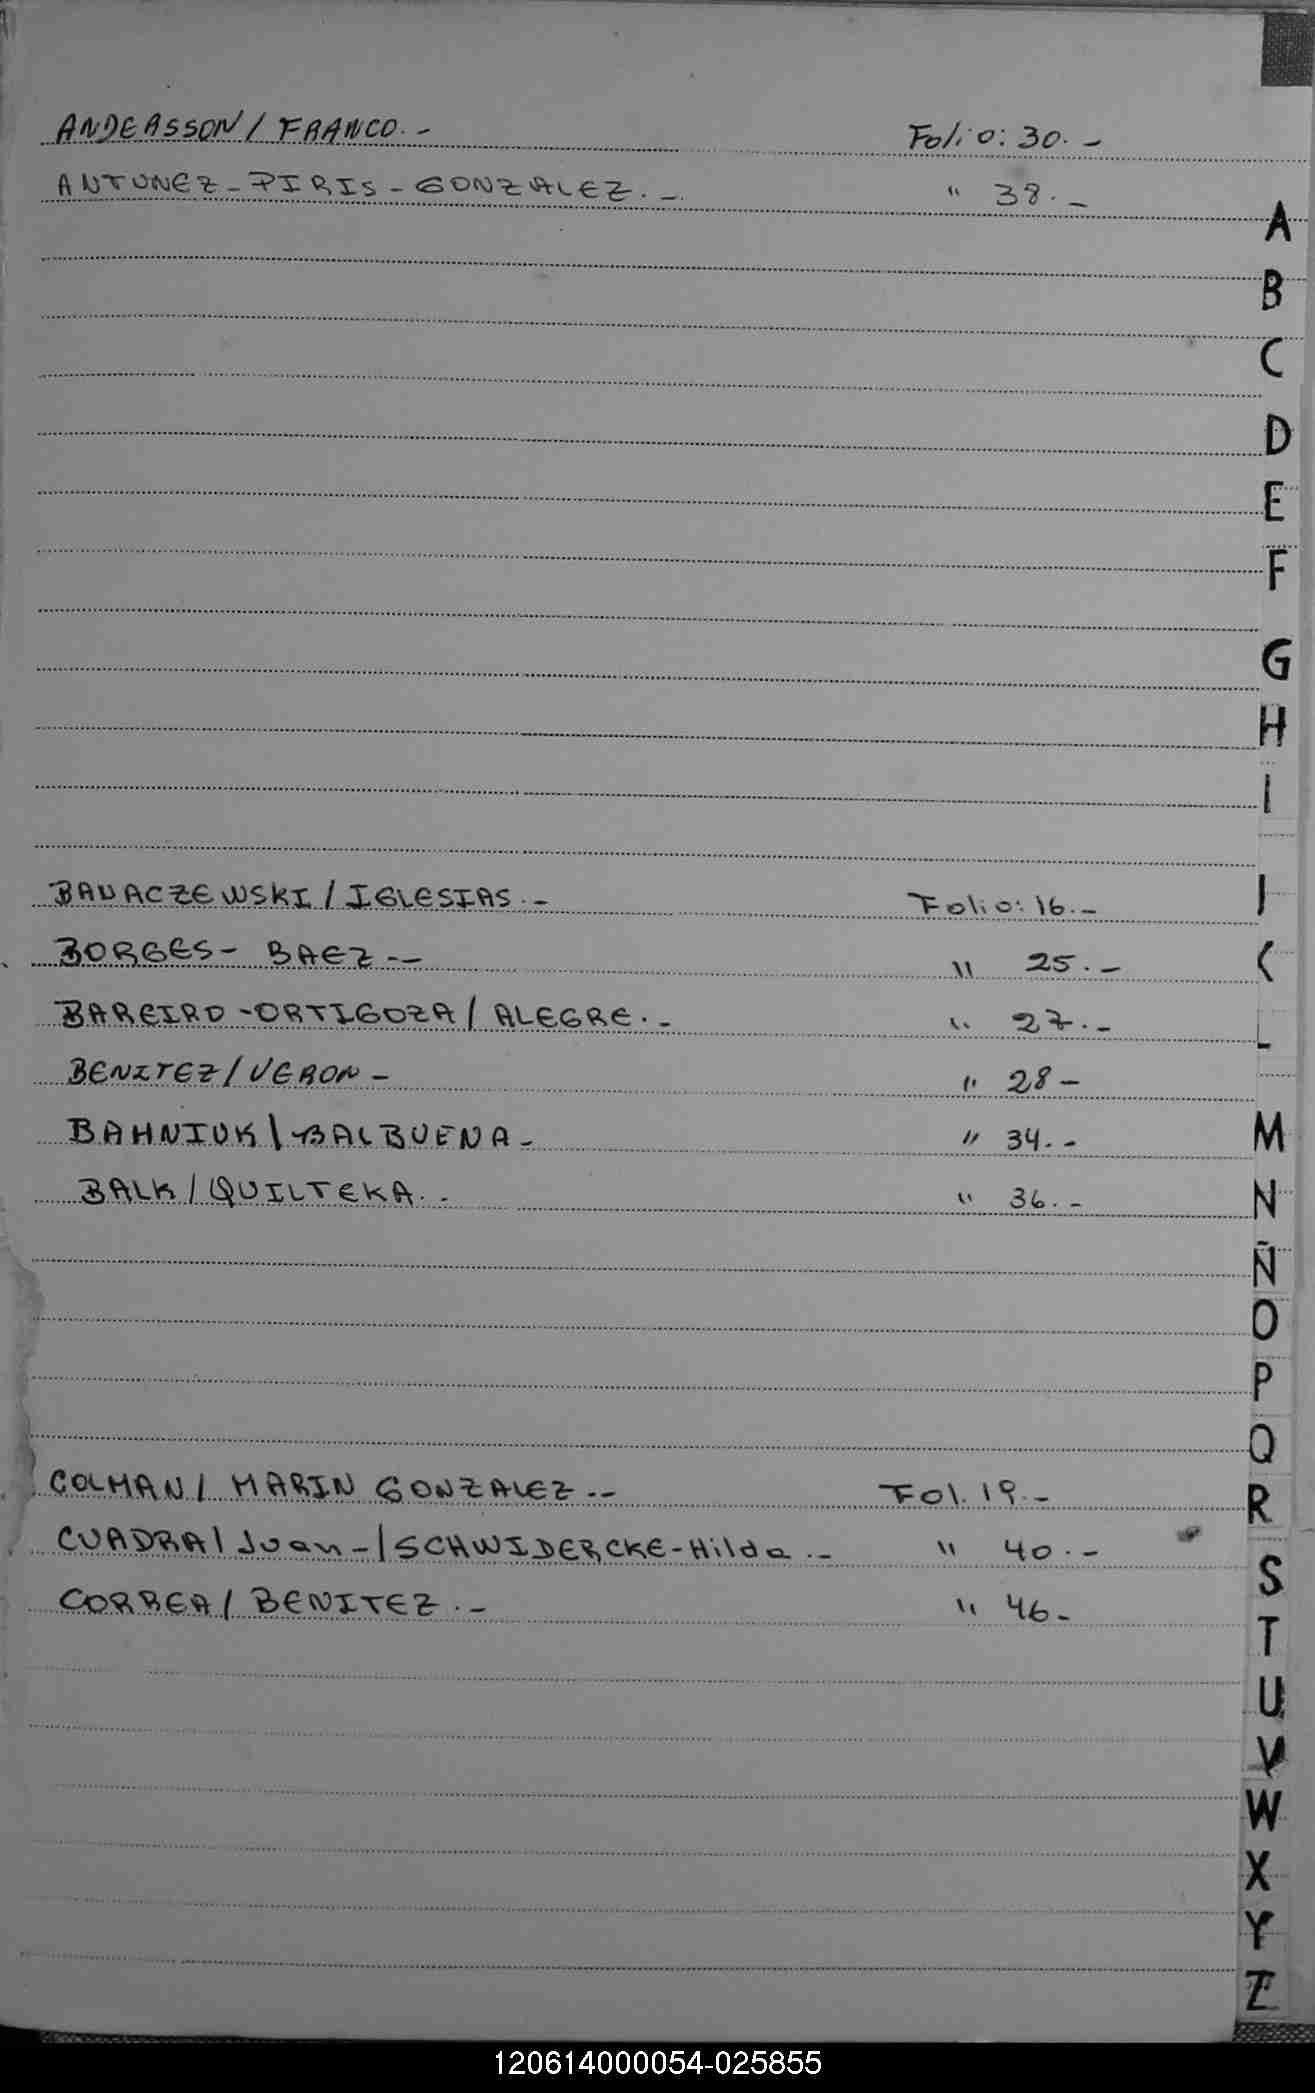 ANDERSSON / FRANCO.- Folio: 30.-
ANTUNEZ - PIRIS - GONZALEZ.- " 38.-
A
B
C
D
E
F
G
H
I
BANACZEWSKI / IGLESIAS.- Folio: 16.-
J
BORGES - BAEZ.-- " 25.-
K
BAREIRO - ORTIGOZA / ALEGRE.- " 27.-
L
BENITEZ / VERON - " 28 -
BAHNIUK \ BALBUENA - " 34.-
M
BALK / QUILTEKA.- " 36.-
N
Ñ
O
P
Q
COLMAN / MARIN GONZALEZ.-- Fol. 19.-
R
CUADRA / Juan - / SCHWIDERCKE - Hilda.-- " 40.-
S
CORREA / BENITEZ.- " 46 -
T
U
V
W
X
Y
Z
120614000054-025855